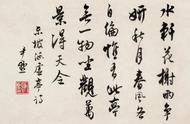 水軒花榭兩爭
妍秋月春風各
自偏惟有此亭
無一物坐觀萬
景得天全
東坡涵虛亭詩
尹默